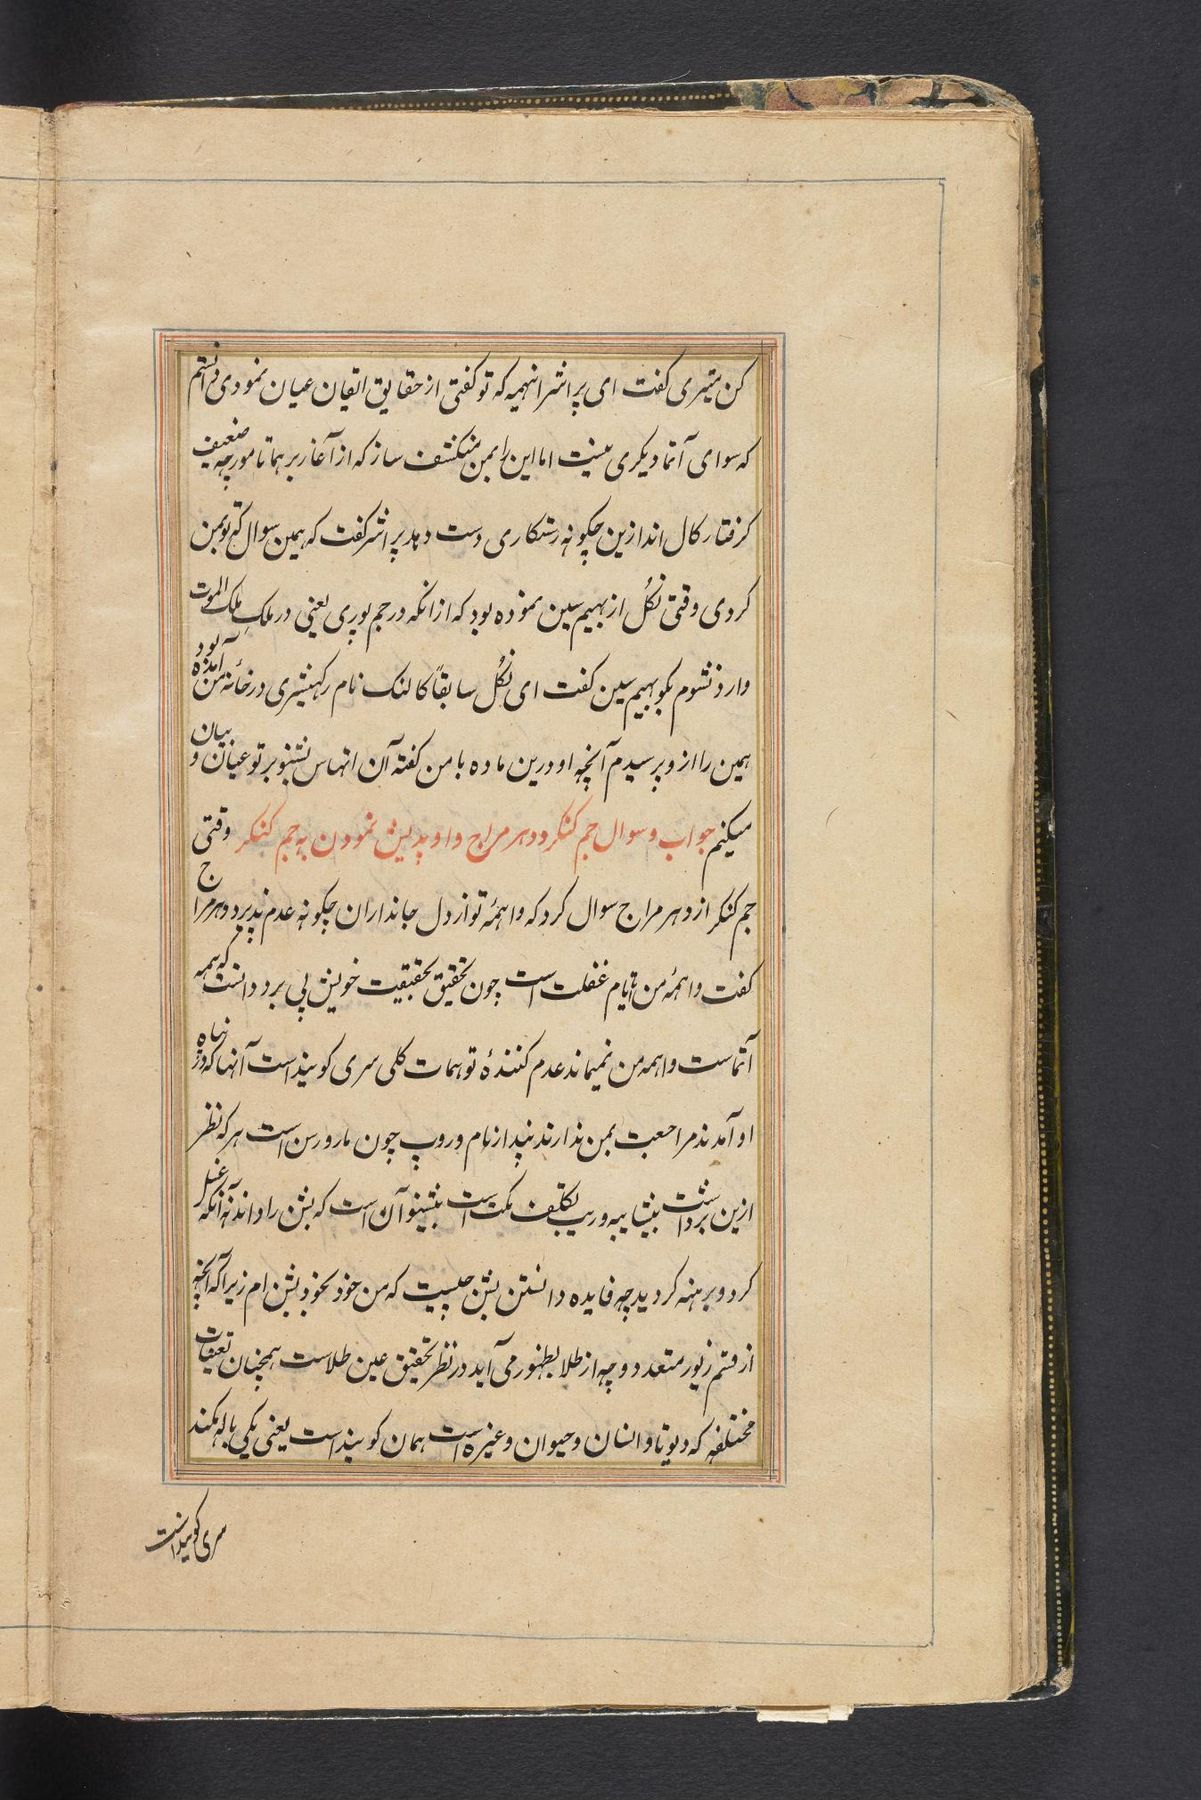 کن میتری گفت ای پراشر اینهمه که تو گفتی از حقایق اتقان عیان نمودی دانستم
که سوای آتما دیگری نیست اما این را بمن منکشف ساز که از آغاز برهما تا مورچه ضعیف
گرفتار کال اند ازین چگونه رستکاری دست دهد پراشر گفت که همین سوال که تو بمن
کردی وقتی نکُل از بهیم سین نموده بود که از آنکه در جم پوری یعنی در ملکِ ملک الموت
وارد نشوم بگو بهیم سین گفت ای نکُل سابقاً کالنک نام رکهیشری در خانهٔ من آمده بود
همین را ازو پرسیدم آنچه او درین ماده با من گفته آن اتهاس بشنو بر تو عیان و بیان
میکنم جواب و سوال جم کنکر و دهرمراج و اوپدیش نمودن به جم کنکر وقتی
جم کنکر از دهرمراج سوال کرد که واهمهٔ تو از دل جانداران چگونه عدم پذیرد دهرمراج
گفت واهمهٔ من تا ایام غفلت است چون تحقیق بحقیقت خویش پی برد دانست که همه
آتماست واهمه من نمیماند عدم کنندهٔ توهمات کلی سری گوبند است آنها که در پناه
او آمدند مراجعت بمن ندارند پندار نام و روپ چون مار و رسن است هر که نظر
ازین برداشت بیشایبه و ریب بیتکلف مکت است بیشنو آن است که بشن را داند نه آنکه غسل
کرد و برهنه گردید چه فایده دانستن بشن چیست که من خود بخود بشن ام زیرا که آنچه
از قسم زیور متعدد وچه از طلا بظهور می آید در نظر تحقیق عین طلاست همچنان تعینات
مختلفه که دیوتا و انسان و حیوان و غیره است همان گوبند است یعنی یکی باله مکند
سری گوبند است